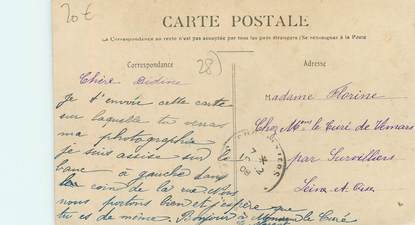 20€
CARTE POSTALE
La Correspondance au recto n'est pas acceptée par tous les pays étrangers (Se renseigner à la Poste
Correspondance
28
Adresse
Chère Didine
Je t'envoie cette carte
sur laquelle tu verras
ma photographie
je suis assise sur le
banc à gauche dans
le coin de la rue. Nous
nous portons bien et j'espère que
tu es de même. Bonjour à le Curé
Madame Florine
Chez Mons. le Curé de Vémars
par Survilliers
Seine et Oise